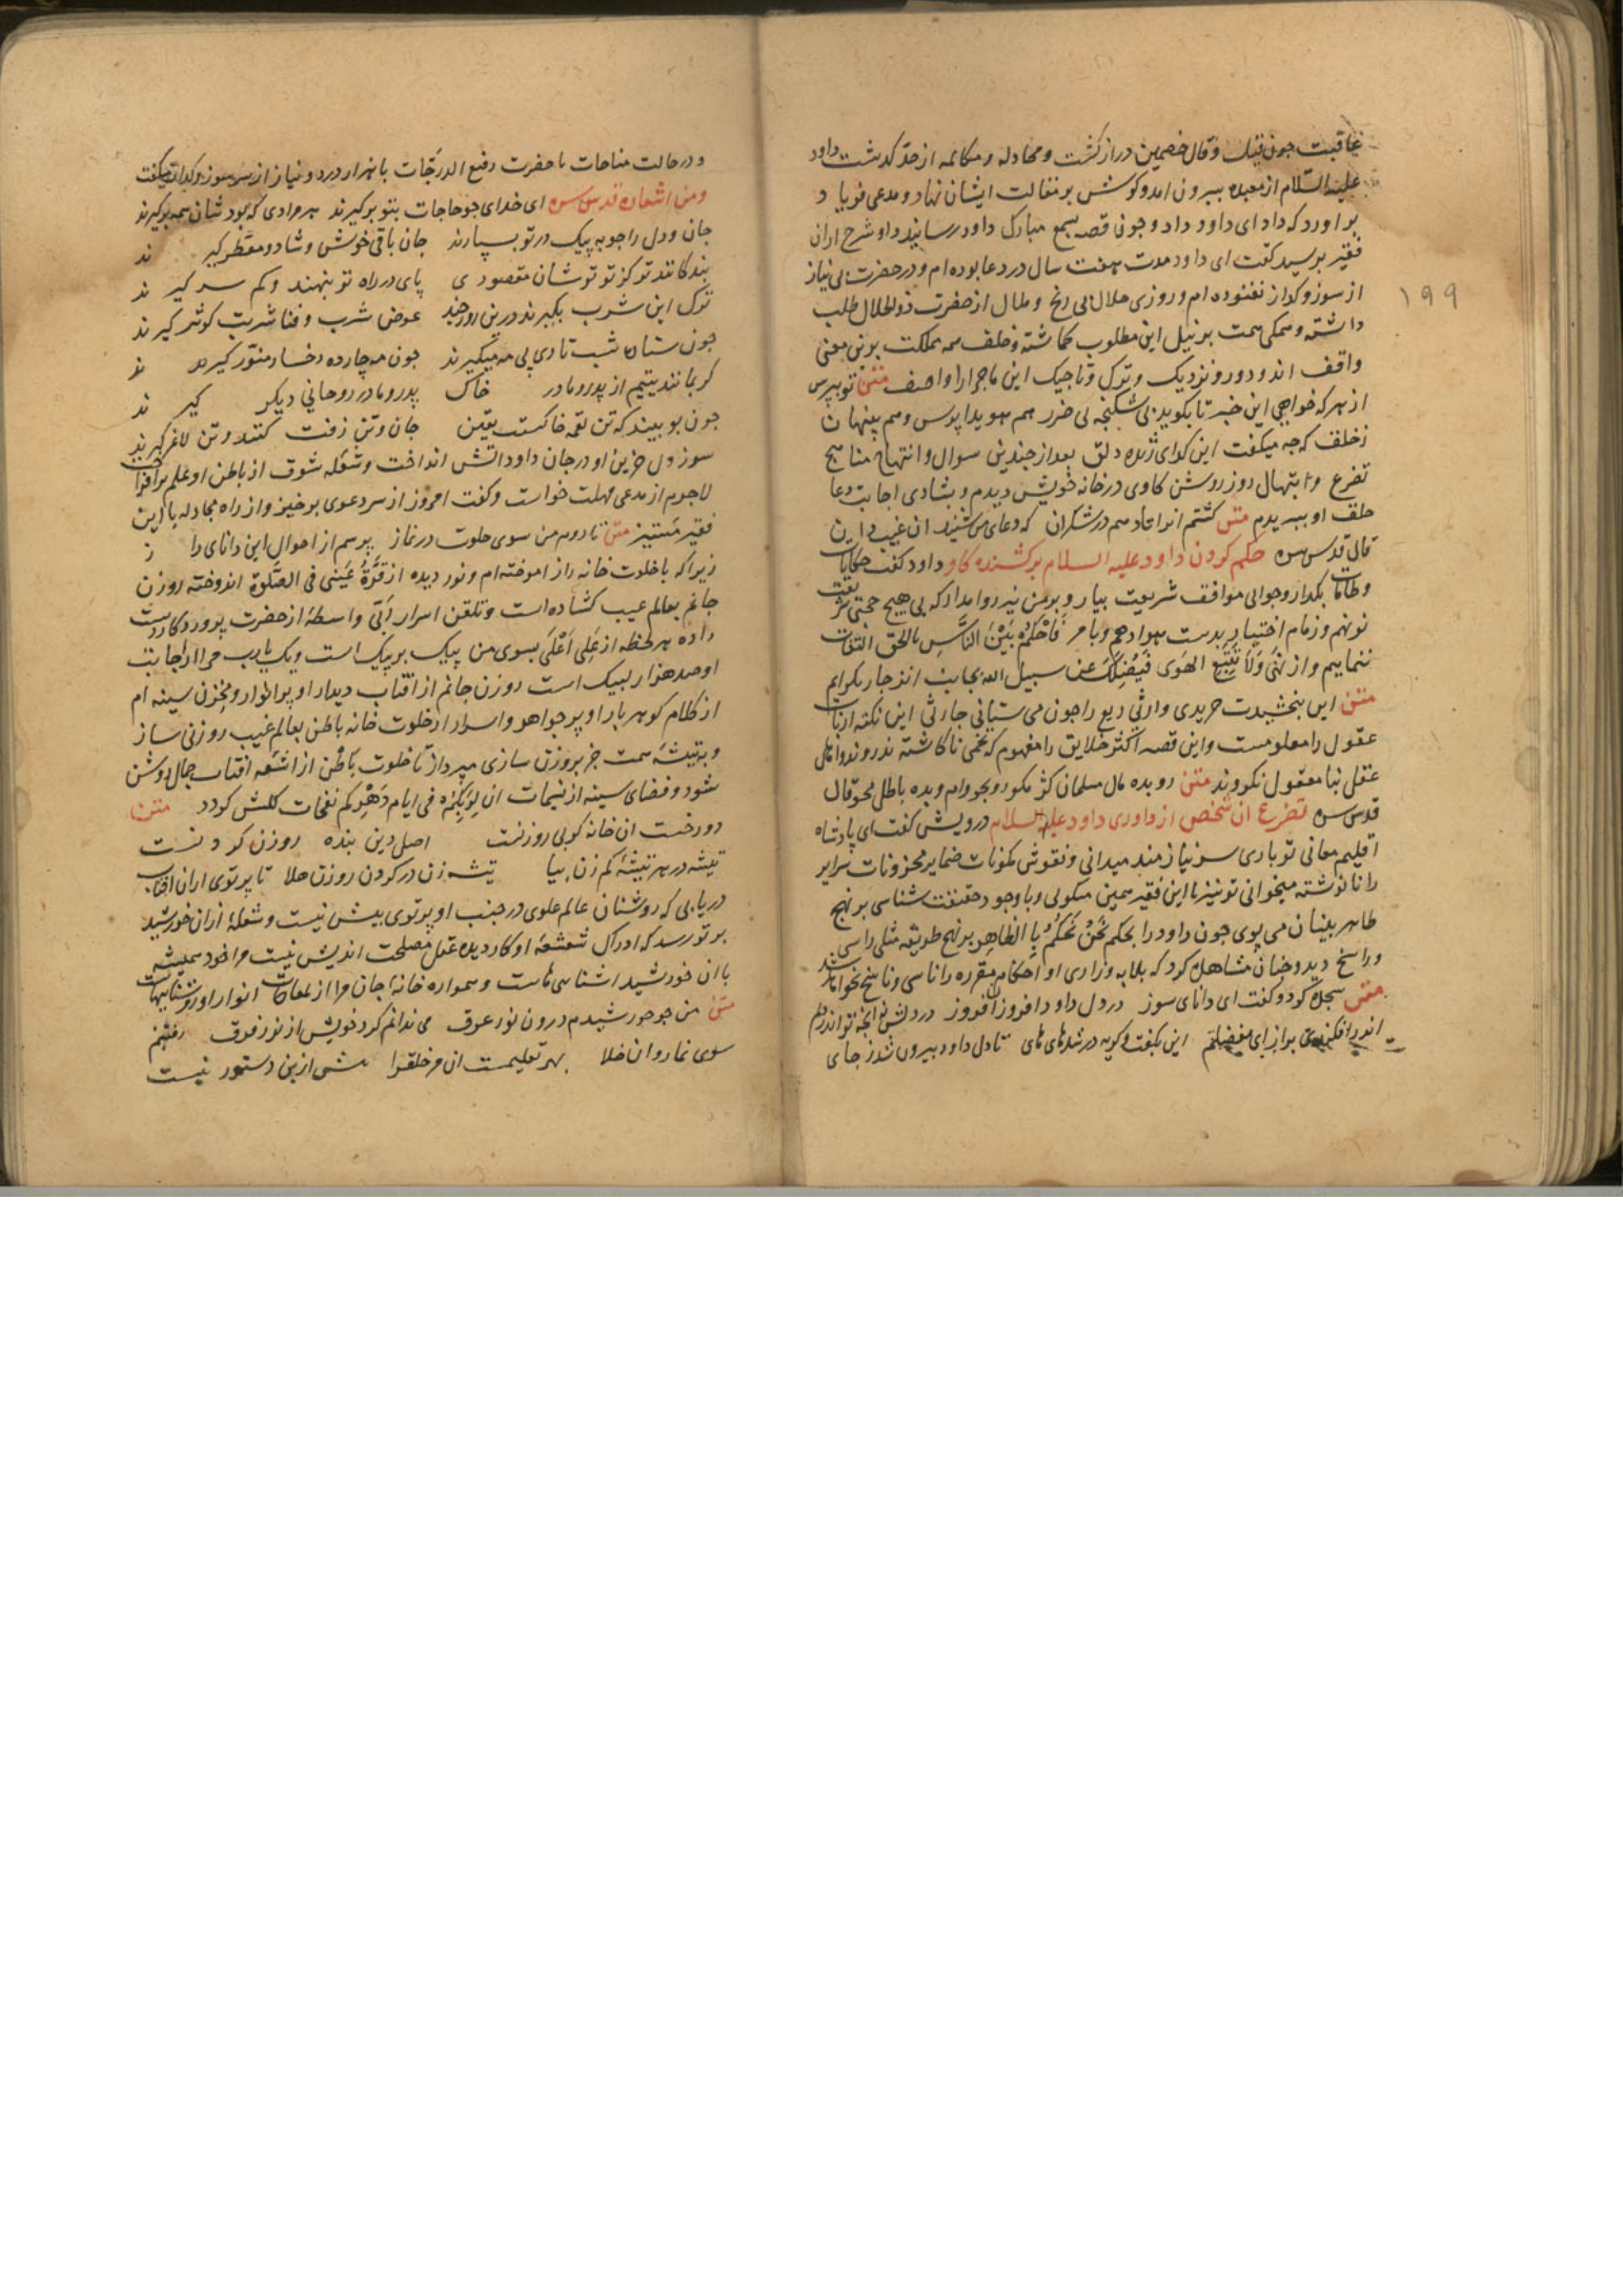 عاقبت جون قیل و قال خصمین دراز کشت و مجادله و مکالمه از حد کدشت داود
علیه السّلام از معبده بیرون امد و کوشش بر مقالت ایشان نهاد و مدعی فریاد
بر اورد که داد ای داود داد و جون قصه بسمع مبارک داود رسانید داود شرح ازان
فقیر برسید کفت ای داود مدت هفت سال در دعا بوده ام و در حضرت بی نیاز
۱۹۹
از سوز و کداز نغنوده ام و روزی حلال بی رنج و ملال از حضرت ذو الجلال طلب
داشته و همکی همت بر نیل این مطلوب کماشته و خلف همه مملکت برین معنی
واقف اند و دور و نزدیک و ترک و تاجیک این ماجرا را واصف متن تو بپرس
از هر که خواهی این خبر تا بکوید بی شکنجه بی ضرر هم هویدا پرس و هم پنهان
ز خلف که جه میکفت این کدای ژنده دلق بعد از جندین سوال و انتهاج مناهج
تضرع و ابتهال روز روشن کاوی در خانه خویش دیدم و بشادی اجابت دعا
حلف او ببریدم متن کشتم انرا تا دهم در شکران که دعای من شنید ان غیب دان
قال قدس سره حکم کردن داود علیه السلام بر کشنده کاو داود کفت حکایات
و طامات بکذار و جوابی موافق شریعت بیار و بر من نیز روا مدار که بی هیچ حجتی شریعت
نو نهم و زمام اختیار بدست هوا دهم و بامر فَاحْکُمْ بَیْنَ النَّاسِ بالحق التفات
ننماییم و از نهی وَلَا تَتَّبِعِ الهَوَی فَیُضِلَّکَ عن سبیل الله بجانب انزجار نکرایم
متن این بخشیدت خریدی وارثی ریع را جون می ستانی جارثی این نکته ارباب
عقول را معلومست و این قصه اکثر خلایق را مفهوم که تخمی ناکاشته ندروند و اهالی
عقل بنا معقول نکروند متن رو بده مال مسلمان کژ مکو رو بجو وام و بده باطل مجو قال
قدس سره تضرع ان شخص از داوری داود علیه السلام درویش کفت ای پادشاه
اقلیم معانی تو باری سر نیازمند میدانی و نقوش مکونات ضمایر و مخزونات سرایر
را نانوشته میخوانی تو نیز با این فقیر همین میکویی و با وجود حقیقت شناسی بر نهج
ظاهر بینان می پوی جون داود را بحکم نَحْنُ نَحْکُمُ بِالظاهِرِ بر نهج طریقه مثلی راسی
و راسخ دید و جنان مشاهده کرد که بلابه و زاری او احکام مقرره را ناسی و ناسخ نخواهد شد
متن سجده کرد و کفت ای دانای سوز در دل داود افروز ان فروز در دلش نه انجه تو اندر دلم
اندر افکندی براز ای مفضلم این بکفت و کریه در شد های های تا دل داود بیرون شد ز جای
و در حالت مناجات با حضرت رفیع الدرَجات با هزار درد و نیاز از سر سوز و کداز میکفت
ومن اشعاره قدس سره ای خدای جو حاجات بتو بر کیرند هر مرادی که بود شان همه بر کیرند
جان و دل را جو به پیک در تو بسپارند جان باقی خوش و شاد و معطر کیرند
بندکانند تو کز تو تو شان مقصودی پای در راه تو بنهند و کم سر کیرند
ترک این شرب بکیرند درین روز جند عوض شرب و فنا شربت کوثر کیرند
جون ستان شب تاری پی مه میکیرند جون مه چارده رخسار منور کیرند
کر بمانند یتیم از پدر و مادر خاک پدر و مادر روحانی دیکر کیرند
جون ببینند که تن لقمه خاکست یقین جان و تن زفت کنند و تن لاغر کیرند
سوز دل حزین او در جان داود اتش انداخت و شعله شوق از باطن او علم بر افراخت
لاجرم از مدعی مهلت خواست و کفت امروز از سر دعوی بر خیز و از راه مجادله با این
فقیر مستیز متن تا روم من سوی خلوت در نماز پرسم از احوال این دانای راز
زیرا که با خلوت خانه راز اموخته ام و نور دیده از قُرَّةُ عَینی فی الصَّلوة اندوخته روزن
جانم بعالم غیب کشاده است و تلقن اسرار بی واسطه از حضرت پروردکار دست
داده هر لحظه از عَلِی اَعْلَی بسوی من پیک بر پیک است و یک یارب مرا از اجابت
او صد هزار لبیک است روزن جانم از افتاب دیدار او پر انوار و مخزن سینه ام
از کلام کوهر بار او پر جواهر و اسرار از خلوت خانه باطن بعالم غیب روزنی ساز
و به تیشه همت جز بروزن سازی مپرداز تا خلوت باطن از اشعه افتاب جمال روشن
شود و فضای سینه از نسیمات ان لِرَبِّکُمْ فی ایام دَهْرِکم نفحات کلشن کردد متن
دوزخست ان خانه کو بی روزنست اصل دین بنده روزن کردنست
تیشه در هر بیشه کم زن بیا تیشه زن در کردن روزن هلا تا پرتوی از ان افتاب
دریابی که روشنان عالم علوی در جنب او پرتوی بیش نیست و شعله ازان خورشید
بر تو رسد که ادراک شعشعه او کار دیده عقل مصلحت اندیش نیست مرا خود همیشه
با ان خورشید اشناییهاست و همواره خانه جان مرا از لمعات انوار او روشناییهاست
متن من جو خورشیدم درون نور غرق می ندانم کرد خویش از نور فرق رفتنم
سوی نماز و ان خلا بهر تعلیمست ان مر خلق را بیش ازین دستور نیست